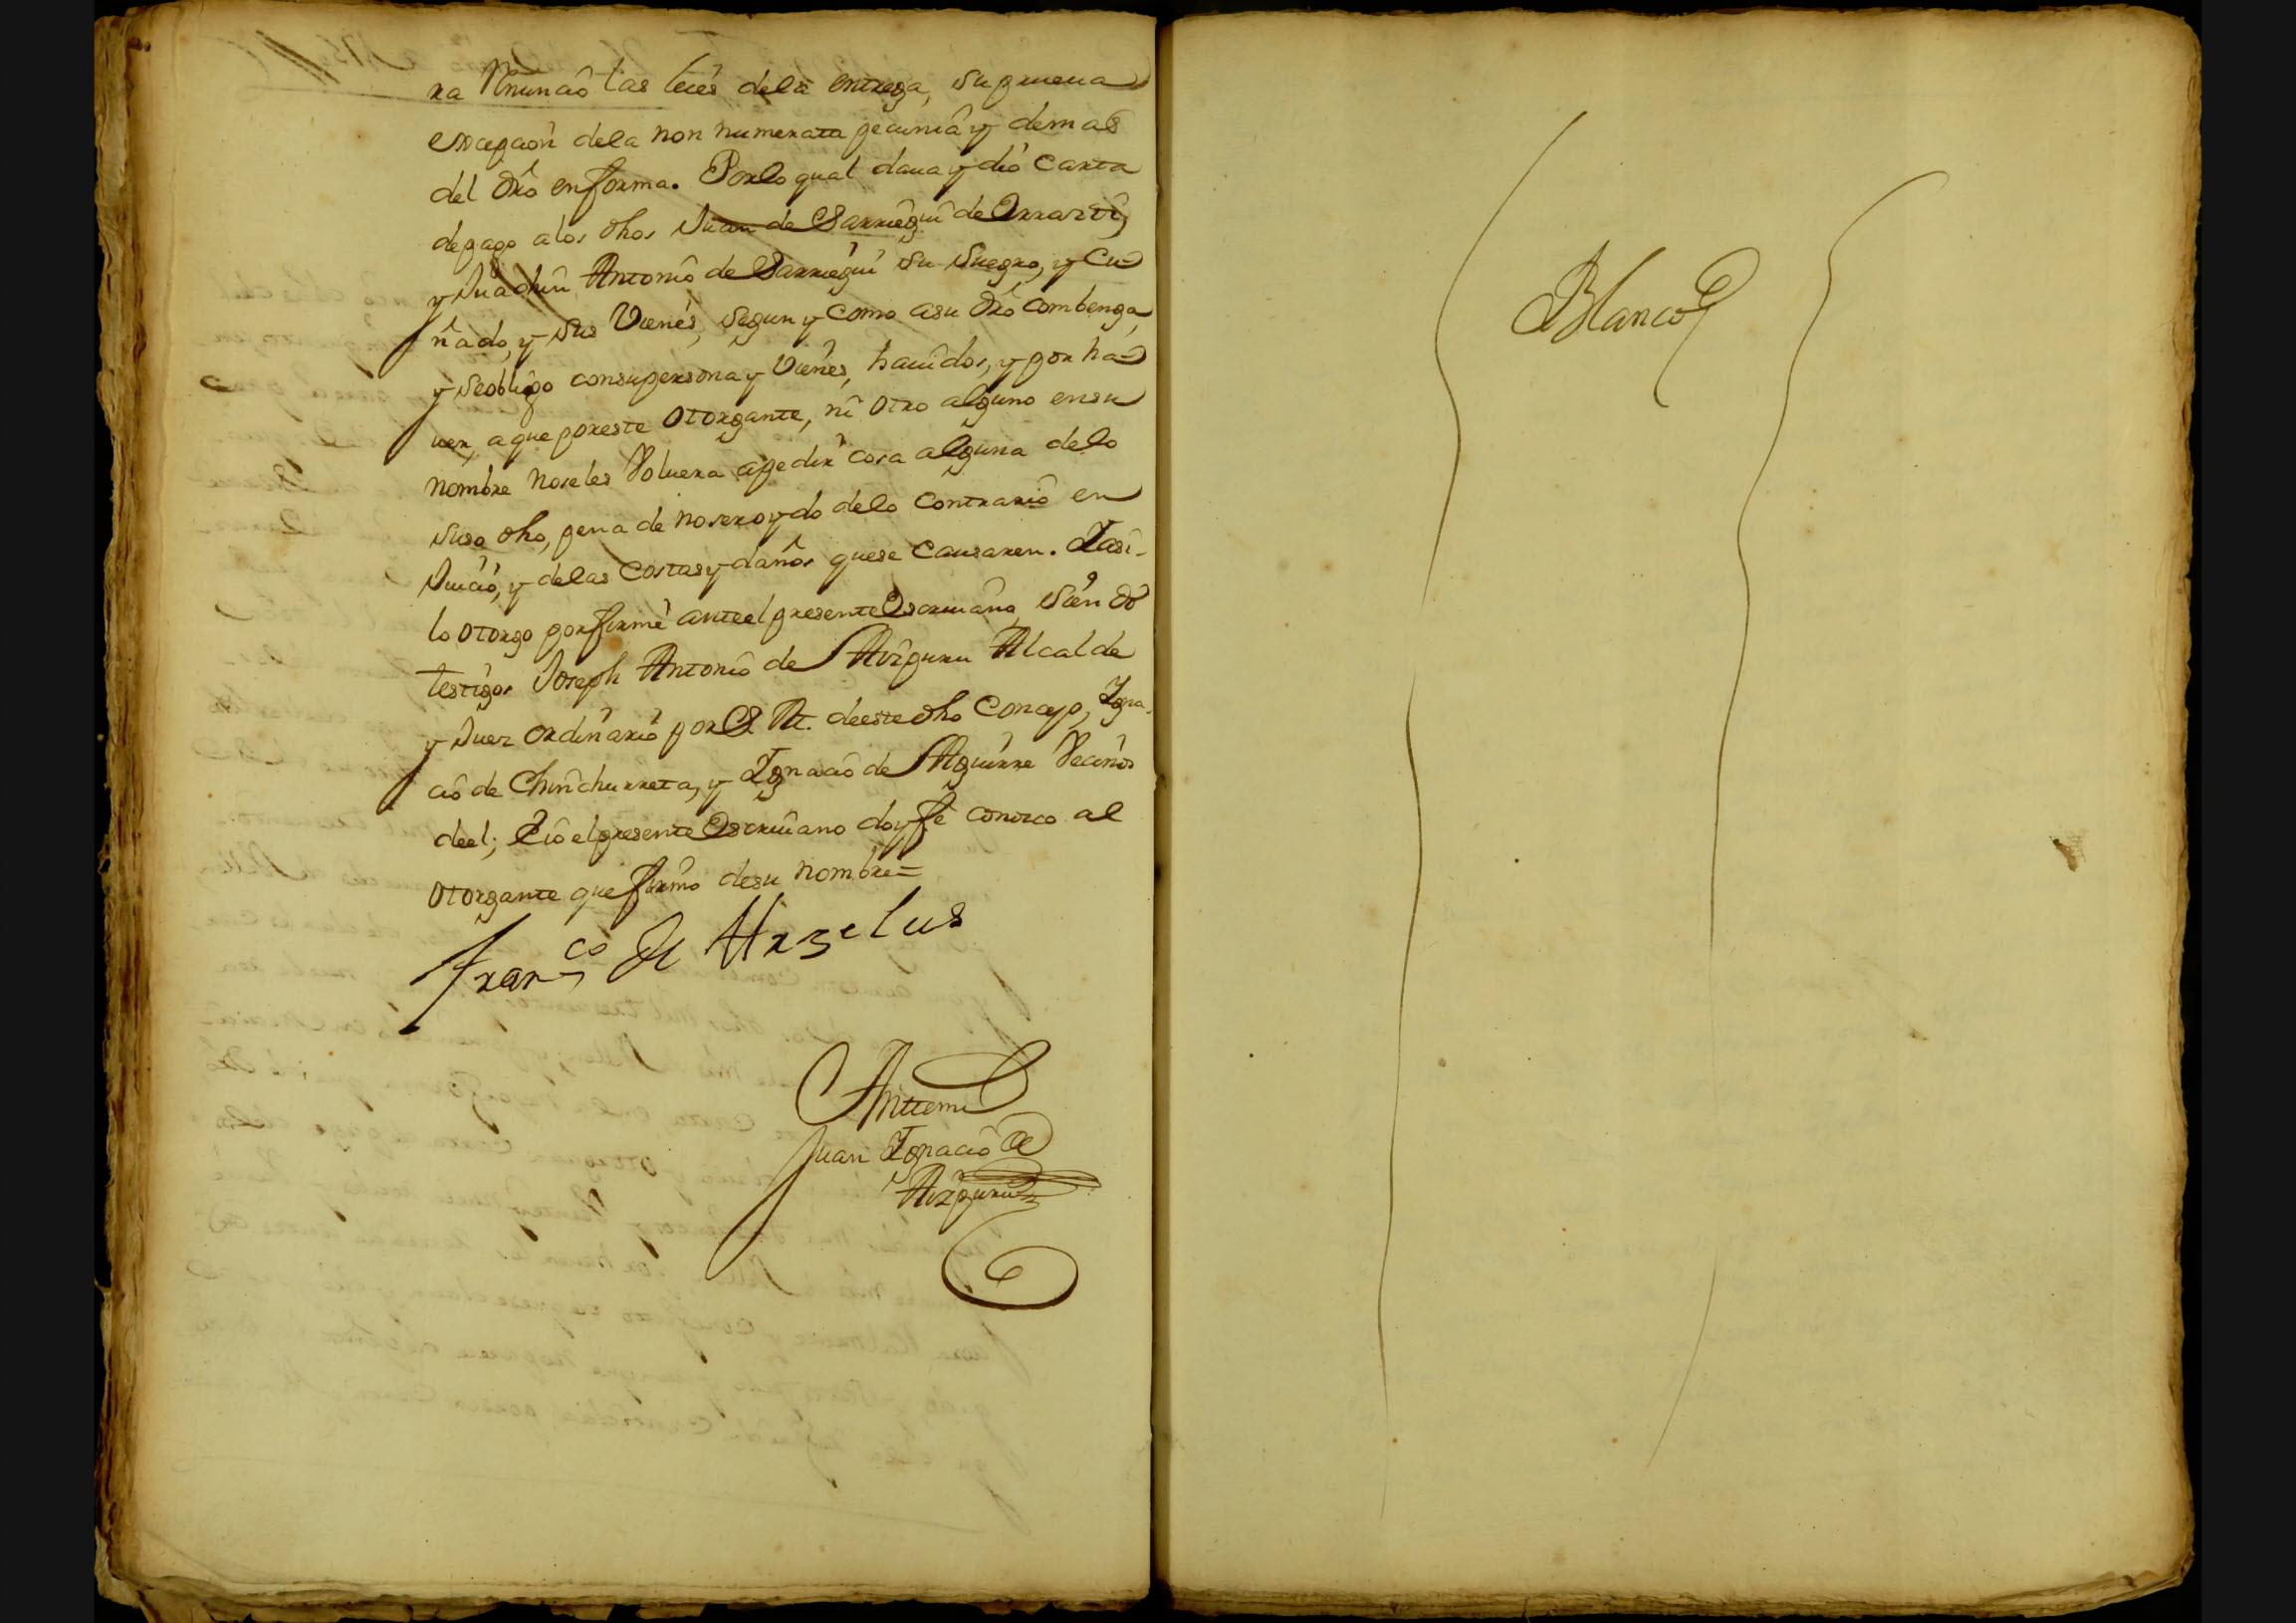 ra Renunció las leies dela entrega, su prueua
excepción dela non numerata pecunia y demas
del dró en forma. Porlo qual daua y dió Carta
depago alos dhos Juan de Sarriegui de Orraozti,
y Juachin Antonio de Sarriegui su Suegro, y Cu-
ñado, y sus Vienes, segun y como asu dró combenga,
y seobligo consupersona y Vienes, hauidos, y por ha-
uer, aque poreste Otorgante, ni otro alguno ensu
nombre noseles Voluera apedir cosa alguna delo
suso dho, pena de noseroydo delo contrario en
Juicio, y delas costas y daños quese Causaren. Iasi-
lo otorgo porfirme anteel presente Escriuano, siendo
testigos Joseph Antonio de Aizpuru Alcalde
y Juez ordinario por S. M. deeste dho Concejo, Igna-
cio de Chinchurreta, y Ignacio de Aguirre Vecinos
deel; Eio elpresente Escriuano doyfe conozco al
otorgante que firmo desu nombre=
Fran.co de Urzelus
Anttemi
Juan Ignacio de
Aizpuru
Blanco